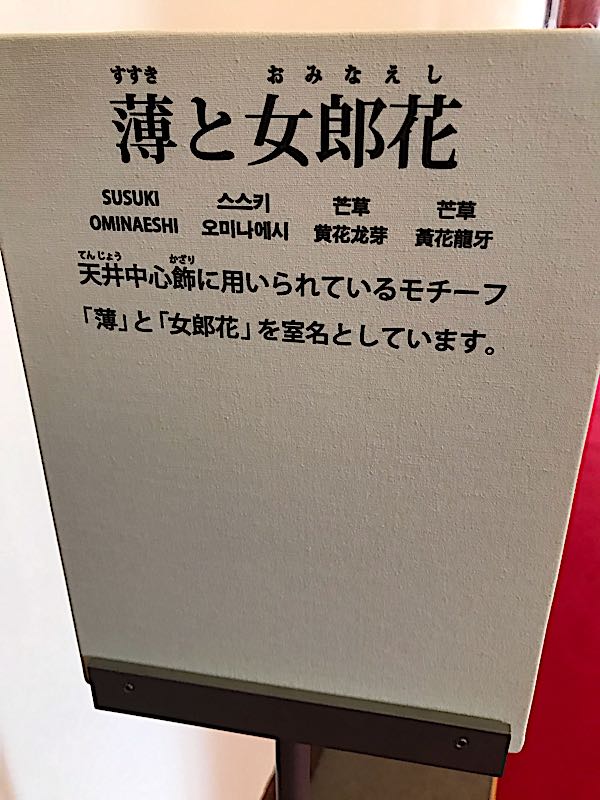 すすき おみなえし
薄と女郎花
SUSUKI 스스키 芒草 芒草
OMINAESHI 오미나에시 黄花龙芽 黃花龍牙
てんじょう かざり
天井中心飾に用いられているモチーフ
「薄」と「女郎花」を室名としています。